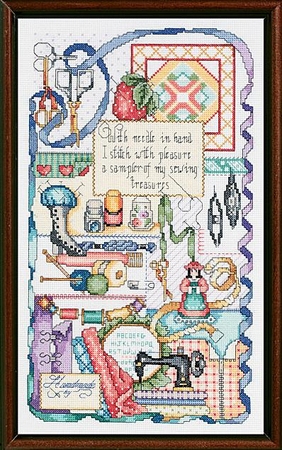 With needle in hand
I stitch with pleasure
a sampler of my sewing
treasures
ABCDEFG
HIJKLMN
Handmade
by